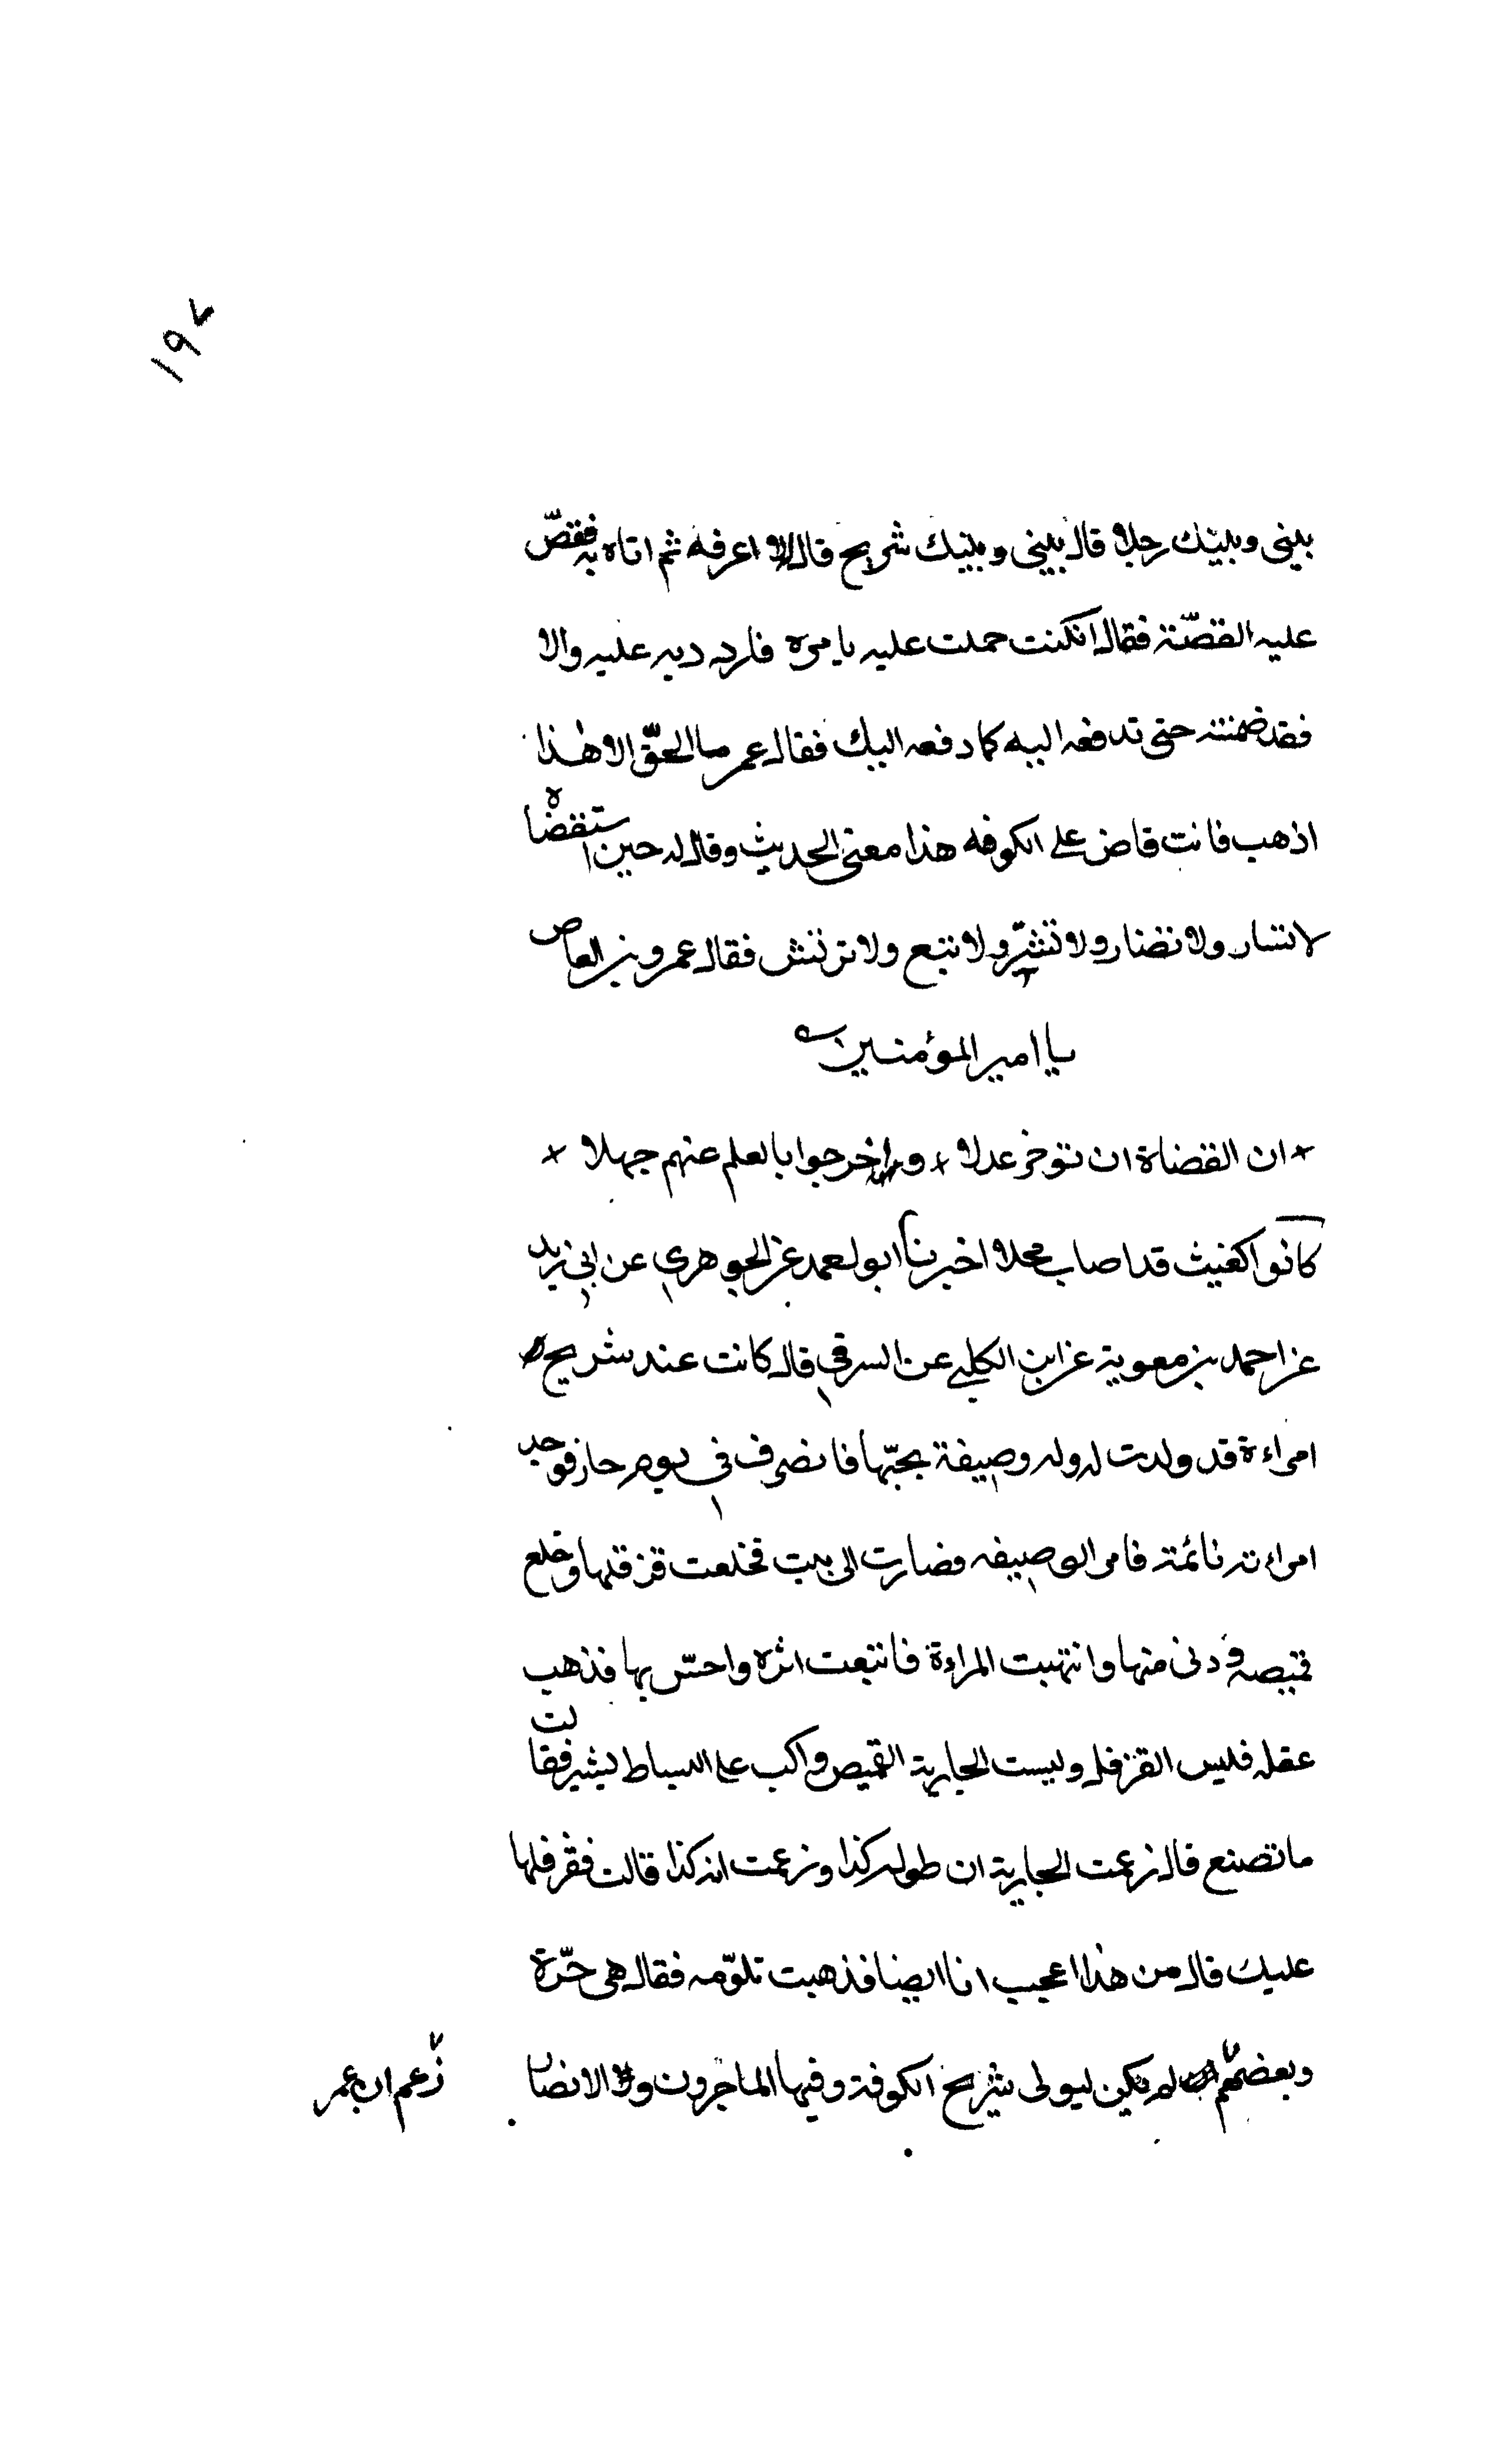 ١٩٧
بينى وبينك رجلا قال بينى وبينك شريح قال لا اعرفه ثم اتاه به فقصّ
عليه القصّة فقال ان كنت حملت عليه يا مره فاردد ديه عليه والا
فقد ضمنته حتى تدفعه اليه كما دفعه اليك فقال عمر ما الحقّ الا هذا
اذهب فانت قاض على الكوفه هذا معنى الحديث وقال له حين استقضاه
لا تشار ولا تضار ولا تشتر ولا تبع ولا ترتش فقال عمرو بن العاص
يا امير المؤمنين
ان القضاة ان توخو عدلا و اخرجوا بالعلم عنهم جهلا
كانوا كغيث قد اصاب محلا اخبرنا ابو احمد عن الجوهري عن ابي زيد
عن احمد بن معوية عن ابن الكلبي عن السرقي قال كانت عند شريح
امراءة قد ولدت له وله وصيفة يحبّها فانصرف في يوم حار فوجد
امراءته نائمة فامر الوصيفه فصارت الى بيت فخلعت قرقلها وخلع
قميصه ودنى منها وانتهبت المراءة فاتبعت اثره واحسّ بها فذهب
عقله فلبس القرقل ولبست الجارية القميص واكب على البساط يشبر فقالت
ما تصنع قال زعمت الجارية ان طوله كذا وزعمت انه كذا قالت فقرقلها
عليك قال من هذا اعجب انا ايضا فذهبت تلوّمه فقال هى حرّة
وبعضهم لم يكن ليولى شريح الكوفة وفيها المهاجرون والانصار زعم ان عمر